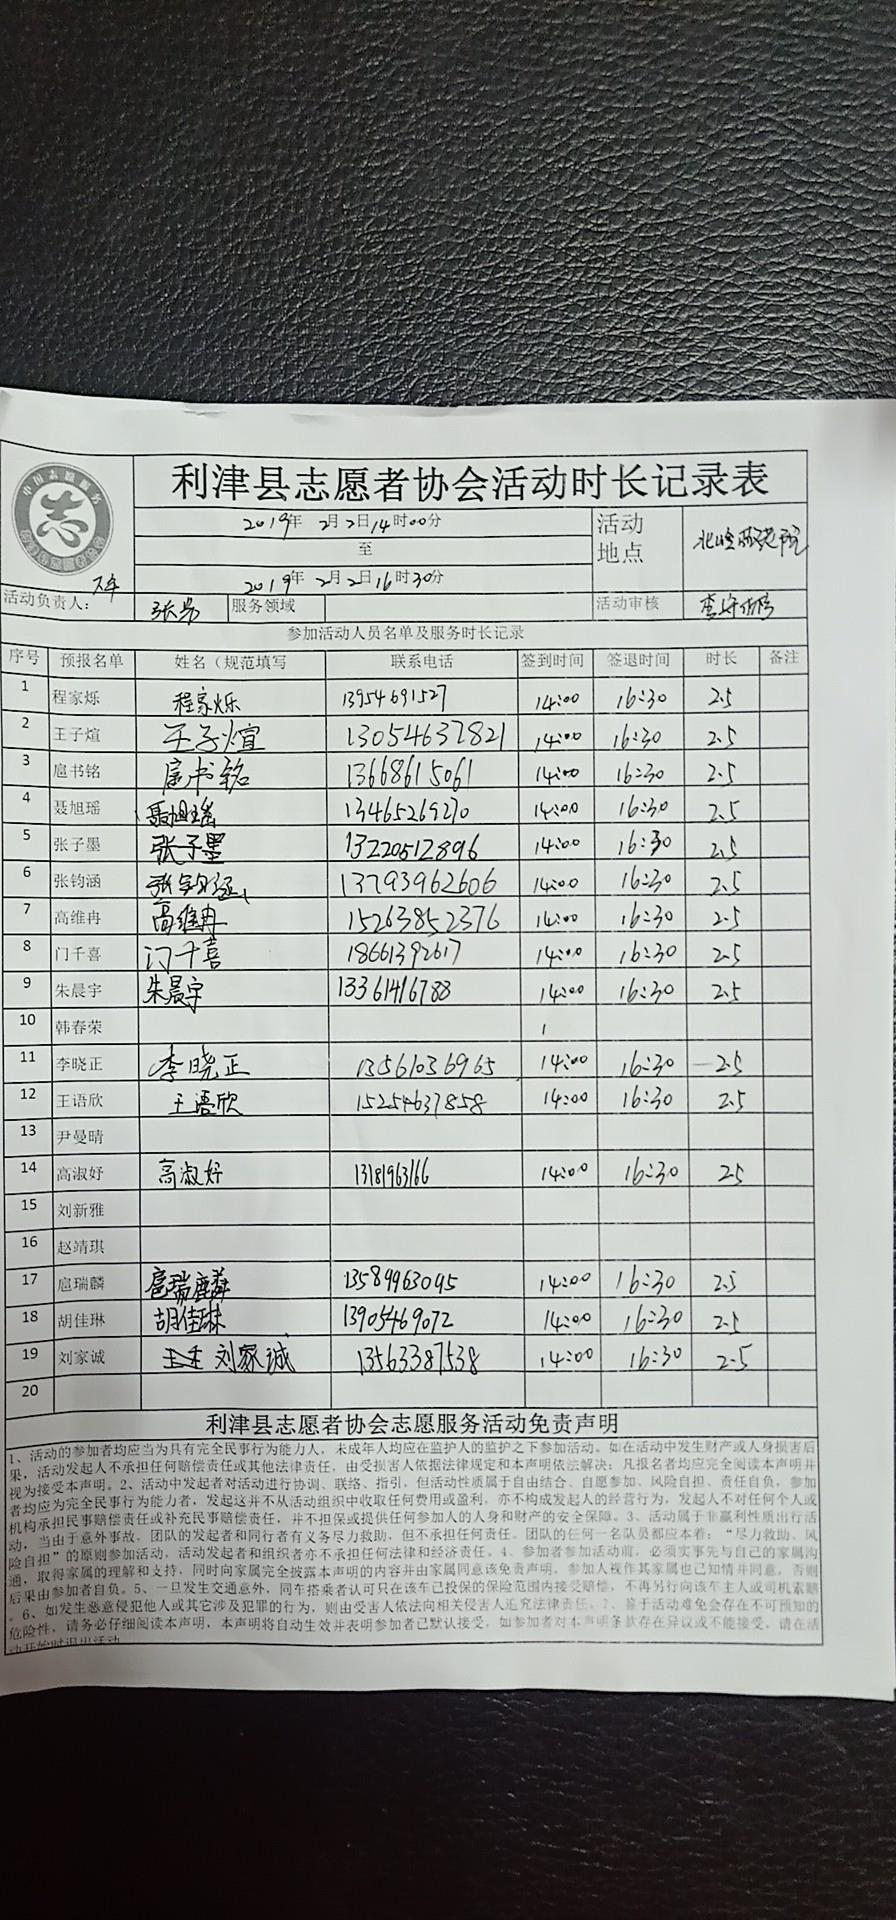 利津县志愿者协会活动时长记录表
2019年 2月2日14时00分
至
2019年 2月2日16时30分
活动地点
活动负责人：
服务领域
活动审核
参加活动人员名单及服务时长记录
序号 预报名单 姓名（规范填写 联系电话 签到时间 签退时间 时长 备注
1 程家烁 程家烁 13954691527 14:00 16:30 2.5
2 王子煊 王子煊 13054637821 14:00 16:30 2.5
3 扈书铭 扈书铭 13668615061 14:00 16:30 2.5
4 聂旭瑶 聂旭瑶 13465269270 14:00 16:30 2.5
5 张子墨 张子墨 13220512896 14:00 16:30 2.5
6 张钧涵 张钧涵 13793962606 14:00 16:30 2.5
7 高维冉 高维冉 15263852376 14:00 16:30 2.5
8 门千喜 门千喜 18661392617 14:00 16:30 2.5
9 朱晨宇 朱晨宇 13361416788 14:00 16:30 2.5
10 韩春荣
11 李晓正 李晓正 13561036965 14:00 16:30 2.5
12 王语欣 王语欣 15254637858 14:00 16:30 2.5
13 尹曼晴
14 高淑好 高淑好 13181963166 14:00 16:30 2.5
15 刘新雅
16 赵靖琪
17 扈瑞麟 扈瑞麟 13589963095 14:00 16:30 2.5
18 胡佳琳 胡佳琳 13905469072 14:00 16:30 2.5
19 刘家诚 刘家诚 13563387538 14:00 16:30 2.5
20
利津县志愿者协会志愿服务活动免责声明
1、活动的参加者均应当为具有完全民事行为能力人，未成年人均应在监护人的监护之下参加活动。如在活动中发生财产或人身损害后
果，活动发起人不承担任何赔偿责任或其他法律责任，由受损害人依据法律规定和本声明依法解决；凡报名者均应完全阅读本声明并
视为接受本声明。2、活动中发起者对活动进行协调、联络、指引，但活动性质属于自由结合、自愿参加、风险自担、责任自负，参加
者均应为完全民事行为能力者，发起这并不从活动组织中收取任何费用或盈利，亦不构成发起人的经营行为，发起人不对任何个人或
机构承担民事赔偿责任或补充民事赔偿责任，并不担保或提供任何参加人的人身和财产的安全保障。3、活动属于非赢利性质出行活
动，当由于意外事故，团队的发起者和同行者有义务尽力救助，但不承担任何责任。团队的任何一名队员都应本着：“尽力救助、风
险自担”的原则参加活动，活动发起者和组织者亦不承担任何法律和经济责任。4、参加者参加活动前，必须实事先与自己的家属沟
通，取得家属的理解和支持，同时向家属完全披露本声明的内容并由家属同意该免责声明，参加人视作其家属也已知情并同意，否则
后果由参加者自负。5、一旦发生交通意外，同车搭乘者认可只在该车已投保的保险范围内接受赔偿，不再另行向该车主人或司机索赔
。6、如发生恶意侵犯他人或其它涉及犯罪的行为，则由受害人依法向相关侵害人追究法律责任。7、鉴于活动难免会存在不可预知的
危险性，请务必仔细阅读本声明，本声明将自动生效并表明参加者已默认接受，如参加者对本声明条款存在异议或不能接受，请在活
动开始时退出活动